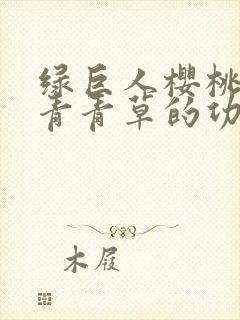 绿巨人樱桃
青青草的功
木屐